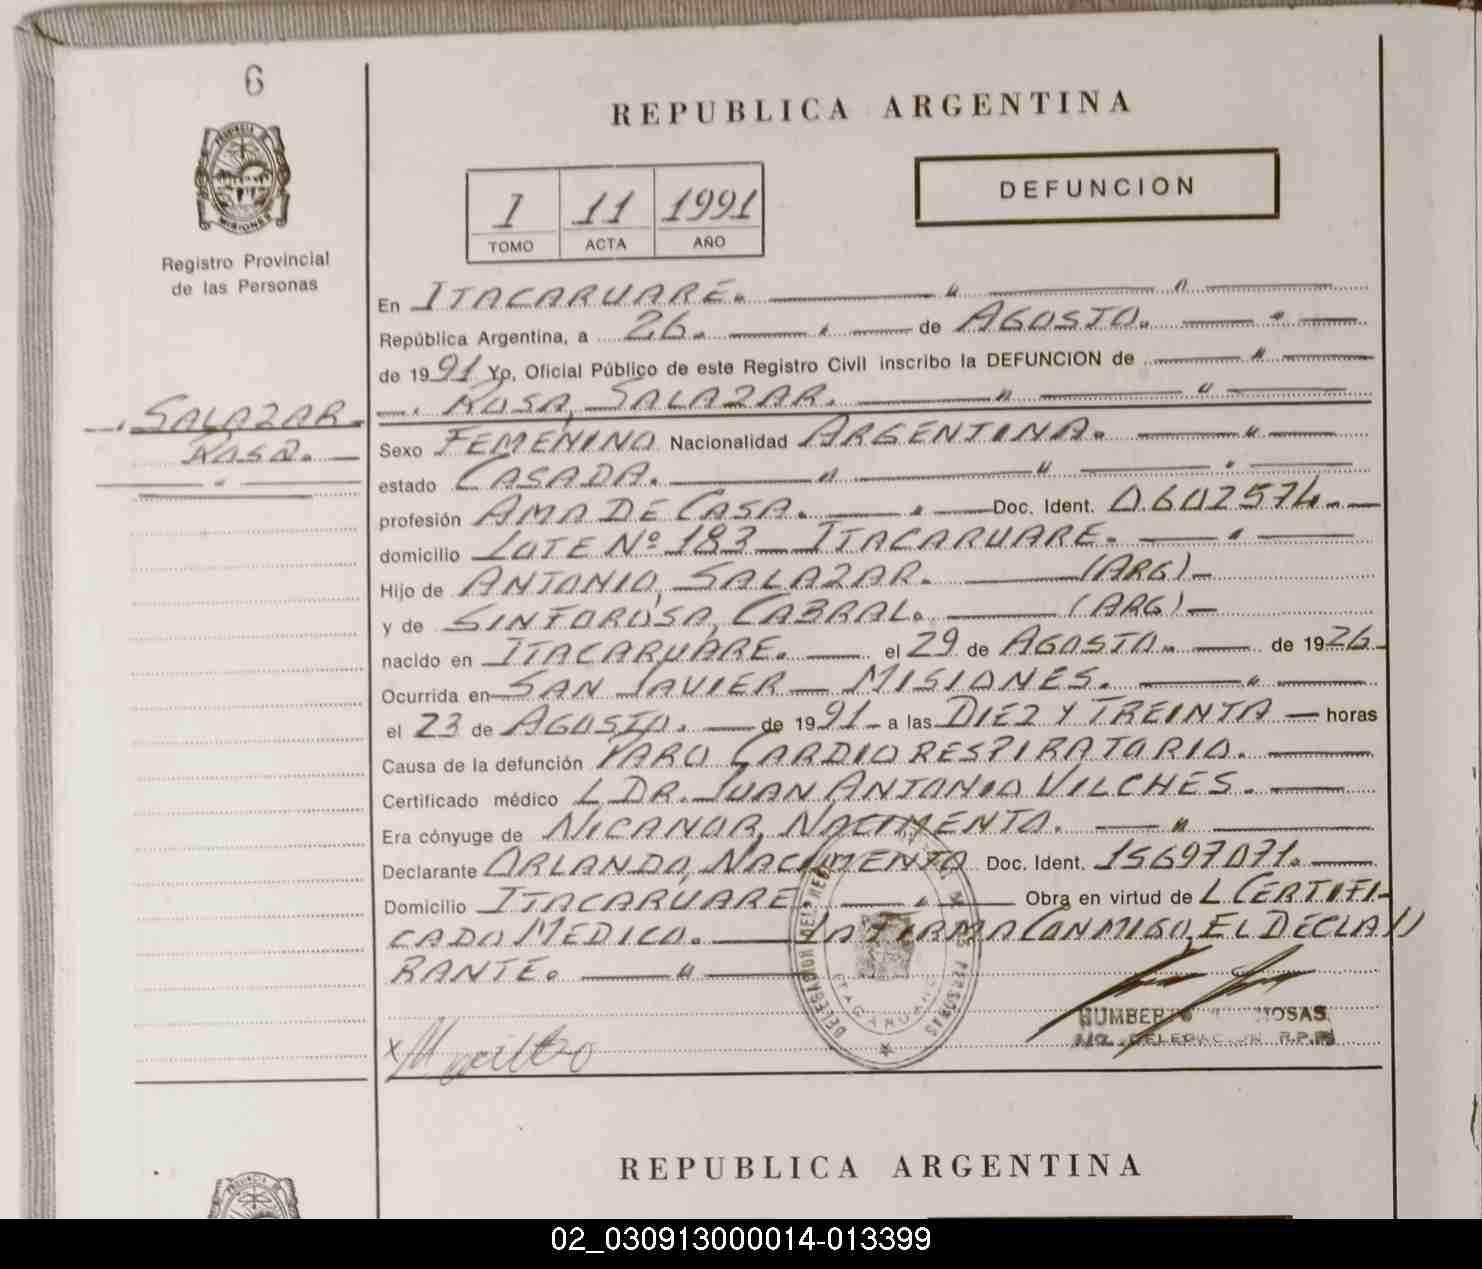 6
PROVINCIA DE
MISIONES
Registro Provincial
de las Personas
SALAZAR
Rosa.
REPUBLICA ARGENTINA
I 11 1991
TOMO ACTA AÑO
DEFUNCION
En ITACARUARE.
República Argentina, a 26. de AGOSTO.
de 1991 Yo, Oficial Público de este Registro Civil inscribo la DEFUNCION de
ROSA, SALAZAR.
Sexo FEMENINO Nacionalidad ARGENTINA.
estado CASADA.
profesión AMA DE CASA. Doc. Ident. 0.602574.
domicilio LOTE Nº 183 ITACARUARE.
Hijo de ANTONIO, SALAZAR. (ARG)
y de SINFOROSA, CABRAL. (ARG)
nacido en ITACARUARE. el 29 de AGOSTO. de 1926.
Ocurrida en SAN JAVIER MISIONES.
el 23 de AGOSTO. de 1991 a las DIEZ Y TREINTA horas
Causa de la defunción PARO CARDIORESPIRATORIO.
Certificado médico L DR. JUAN ANTONIO VILCHES.
Era cónyuge de NICANOR, NACIMENTO.
Declarante ORLANDO, NACIMENTO Doc. Ident. 15697071.
Domicilio ITACARUARE Obra en virtud de L CERTIFI-
CADO MEDICO. LA FIRMA CONMIGO, EL DECLA
RANTE.
DELEGACION DEL REG PERSONAS
ITACARUARE
HUMBERTO OSAS
DELEGACION R.P.P.
X
REPUBLICA ARGENTINA
PROVINCIA DE
02_030913000014-013399